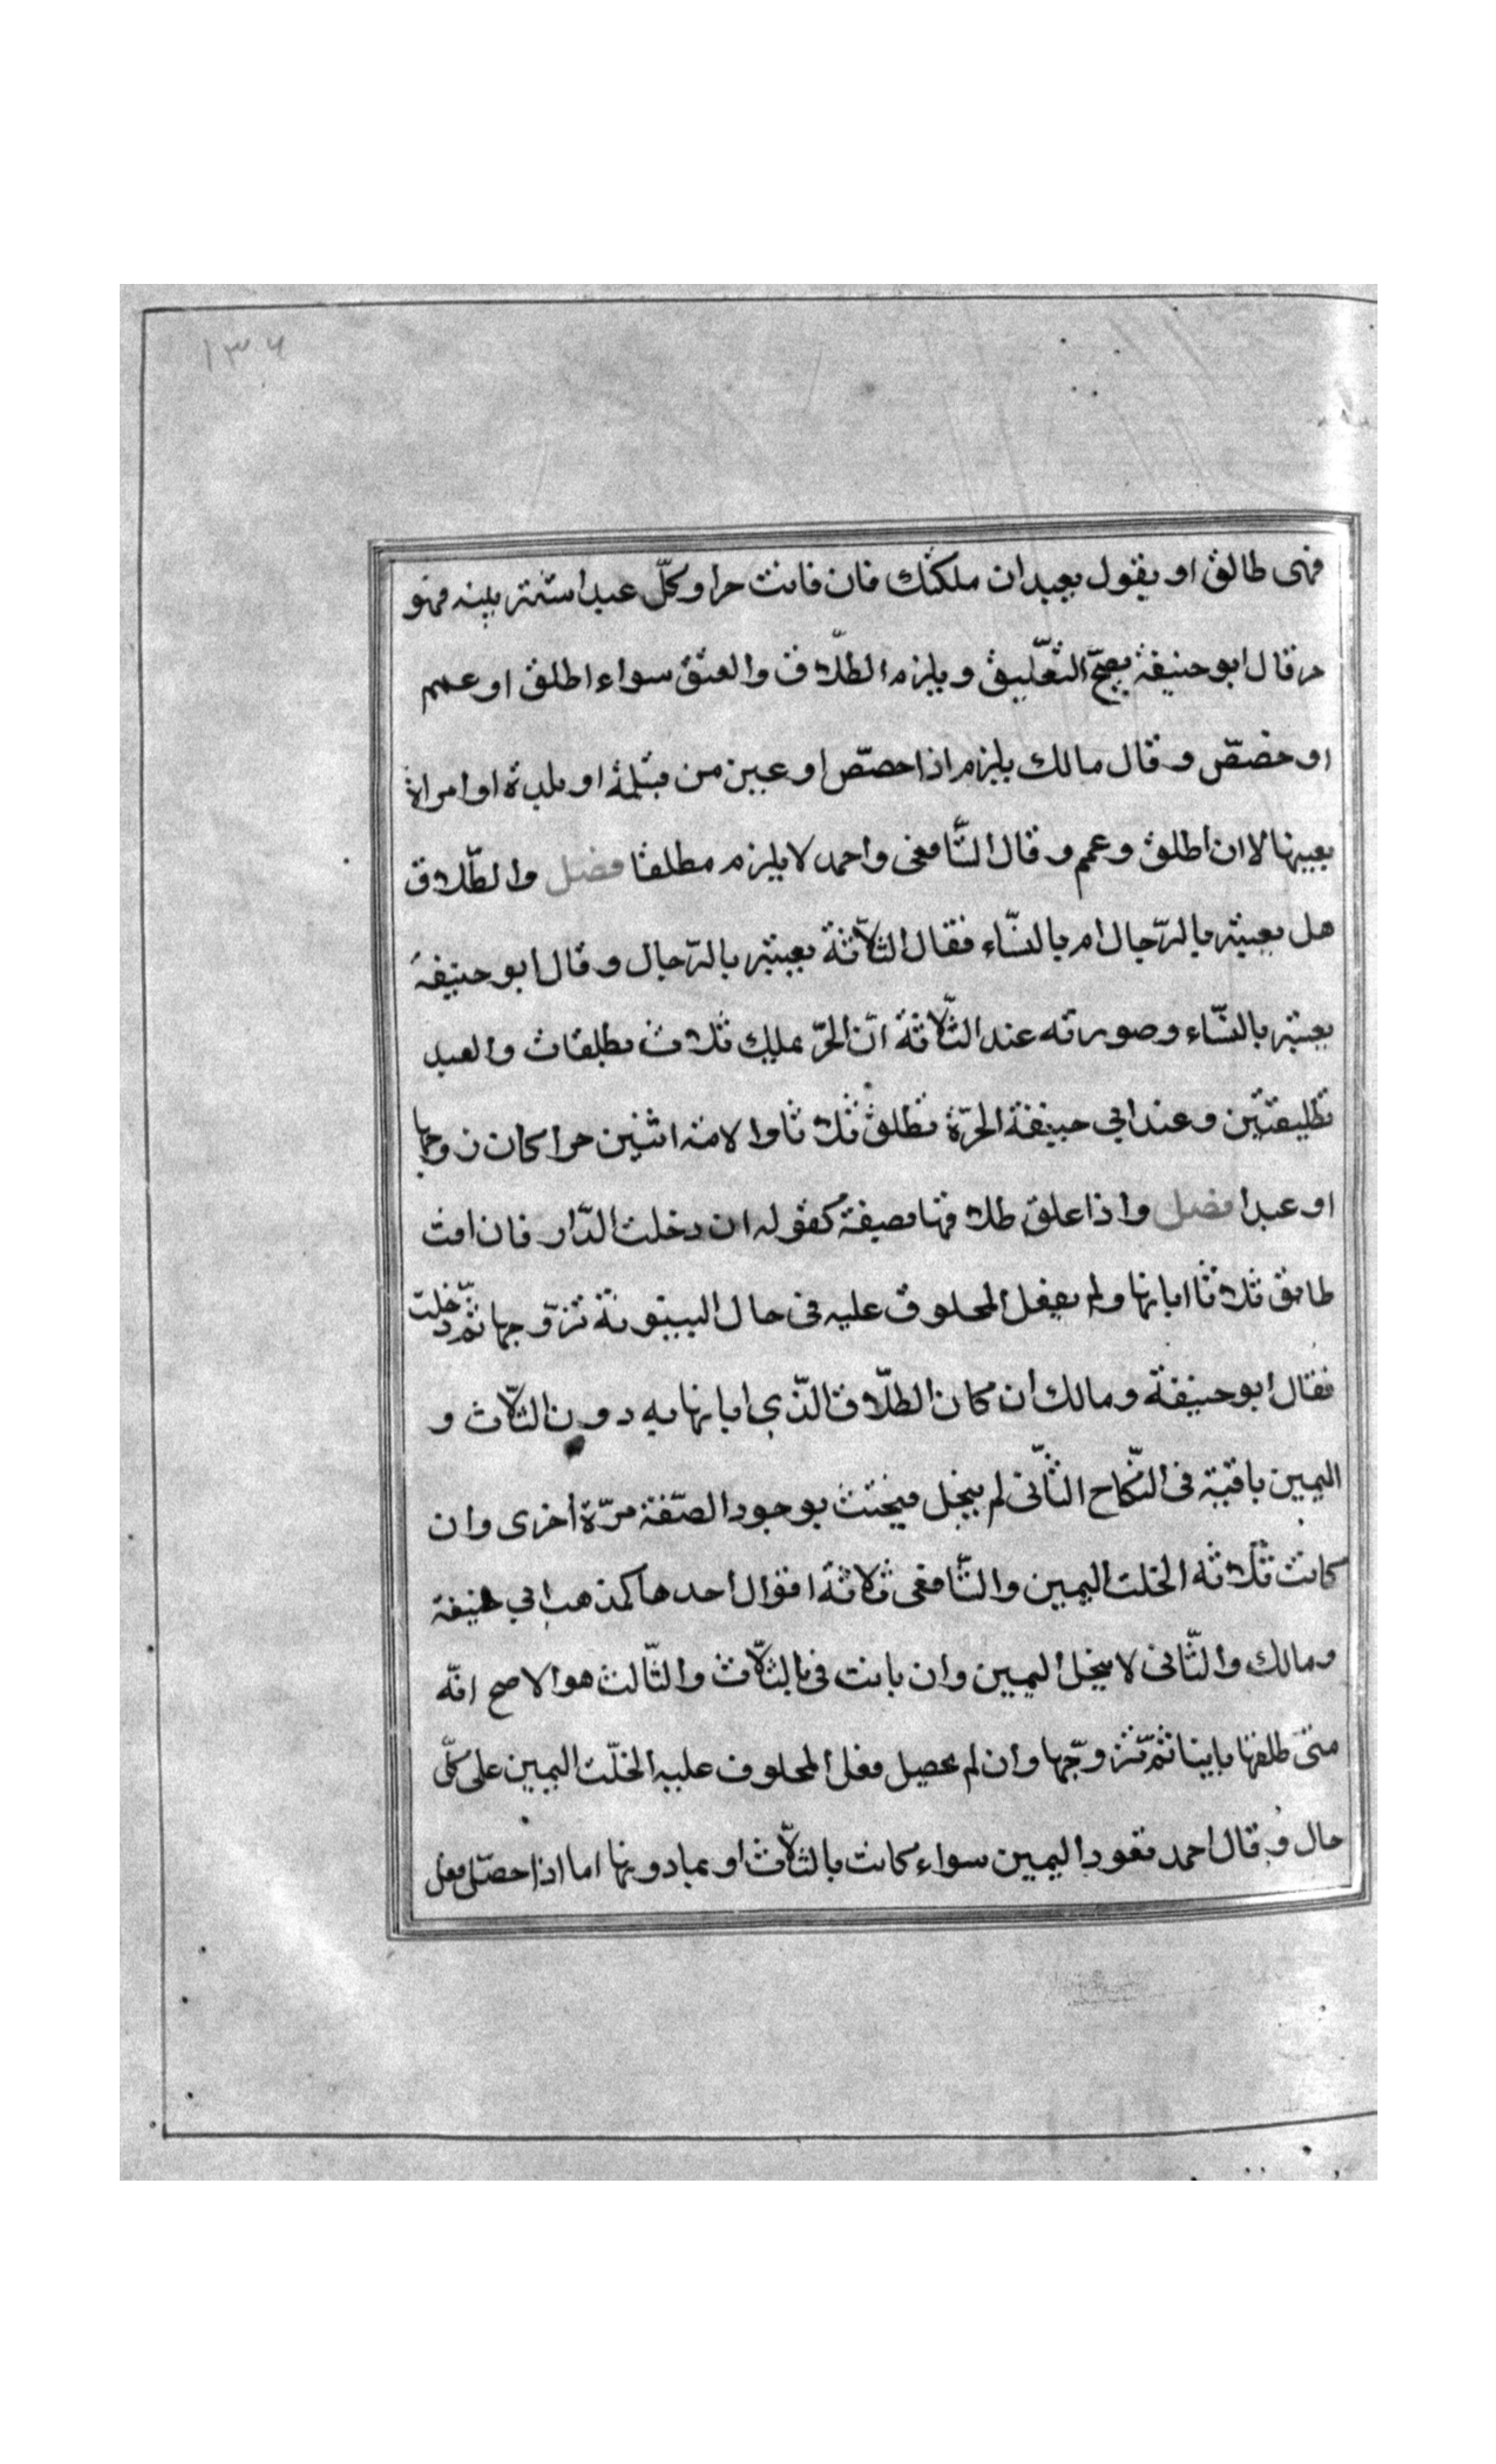 ١٣٦
فهى طالق او يقول بعبد ان ملكتك فان فانت حرا وكلّ عبد اشتريته فهو
حر قال ابو حنيفة يصحّ التعّليق ويلزم الطلّاق والعتق سواء اطلق او عمم
او خصصّ وقال مالك يلزم اذا خصصّ او عين من قبيلة او بلدة او امراة
بعينها لا ان اطلق وعمم وقال الشّافعى واحمد لا يلزم مطلقا فصل والطّلاق
هل يعتبر بالرّجال ام بالنسّاء فقال الثلّاثة يعتبر بالرّجال وقال ابو حنيفة
يعتبر بالنسّاء وصورته عند الثّلاثة انّ الحرّ يملك ثلاث تطلقات والعبد
تطليقتين وعند ابي حنيفة الحرّة تطلق ثلاثا والامة اثنين حرا كان زوجها
او عبدا فصل واذا علق طلاقها بصيغة كقوله ان دخلت الدّار فان انت
طالق ثلاثا ابانها ولم يفعل المحلوف عليه فى حال البينونة تزوّجها ثمّ دخلت
فقال ابو حنيفة ومالك ان كان الطلّاق الذّي ابانها به دون الثلّاث و
اليمين باقية فى النّكاح الثّانى لم ينحل فيحنث بوجود الصّفة مرّة أخرى وان
كانت ثلاثة انحلت اليمين والشّافعى ثلاثة اقوال احدها كمذهب ابي حنيفة
ومالك والثّانى لا ينحل اليمين وان بانت فى بالثلّاث والثّالث هو الاصح انّه
متى طلقها باينا ثمّ تزوّجها وان لم يحصل فعل المحلوف عليه انحلّت اليمين على كلّى
حال وقال احمد تعود اليمين سواء كانت بالثلّاث او بما دونها اما اذا حصّل فعل